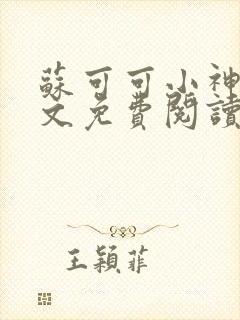 蘇可可小神
文免費閱讀
王穎菲